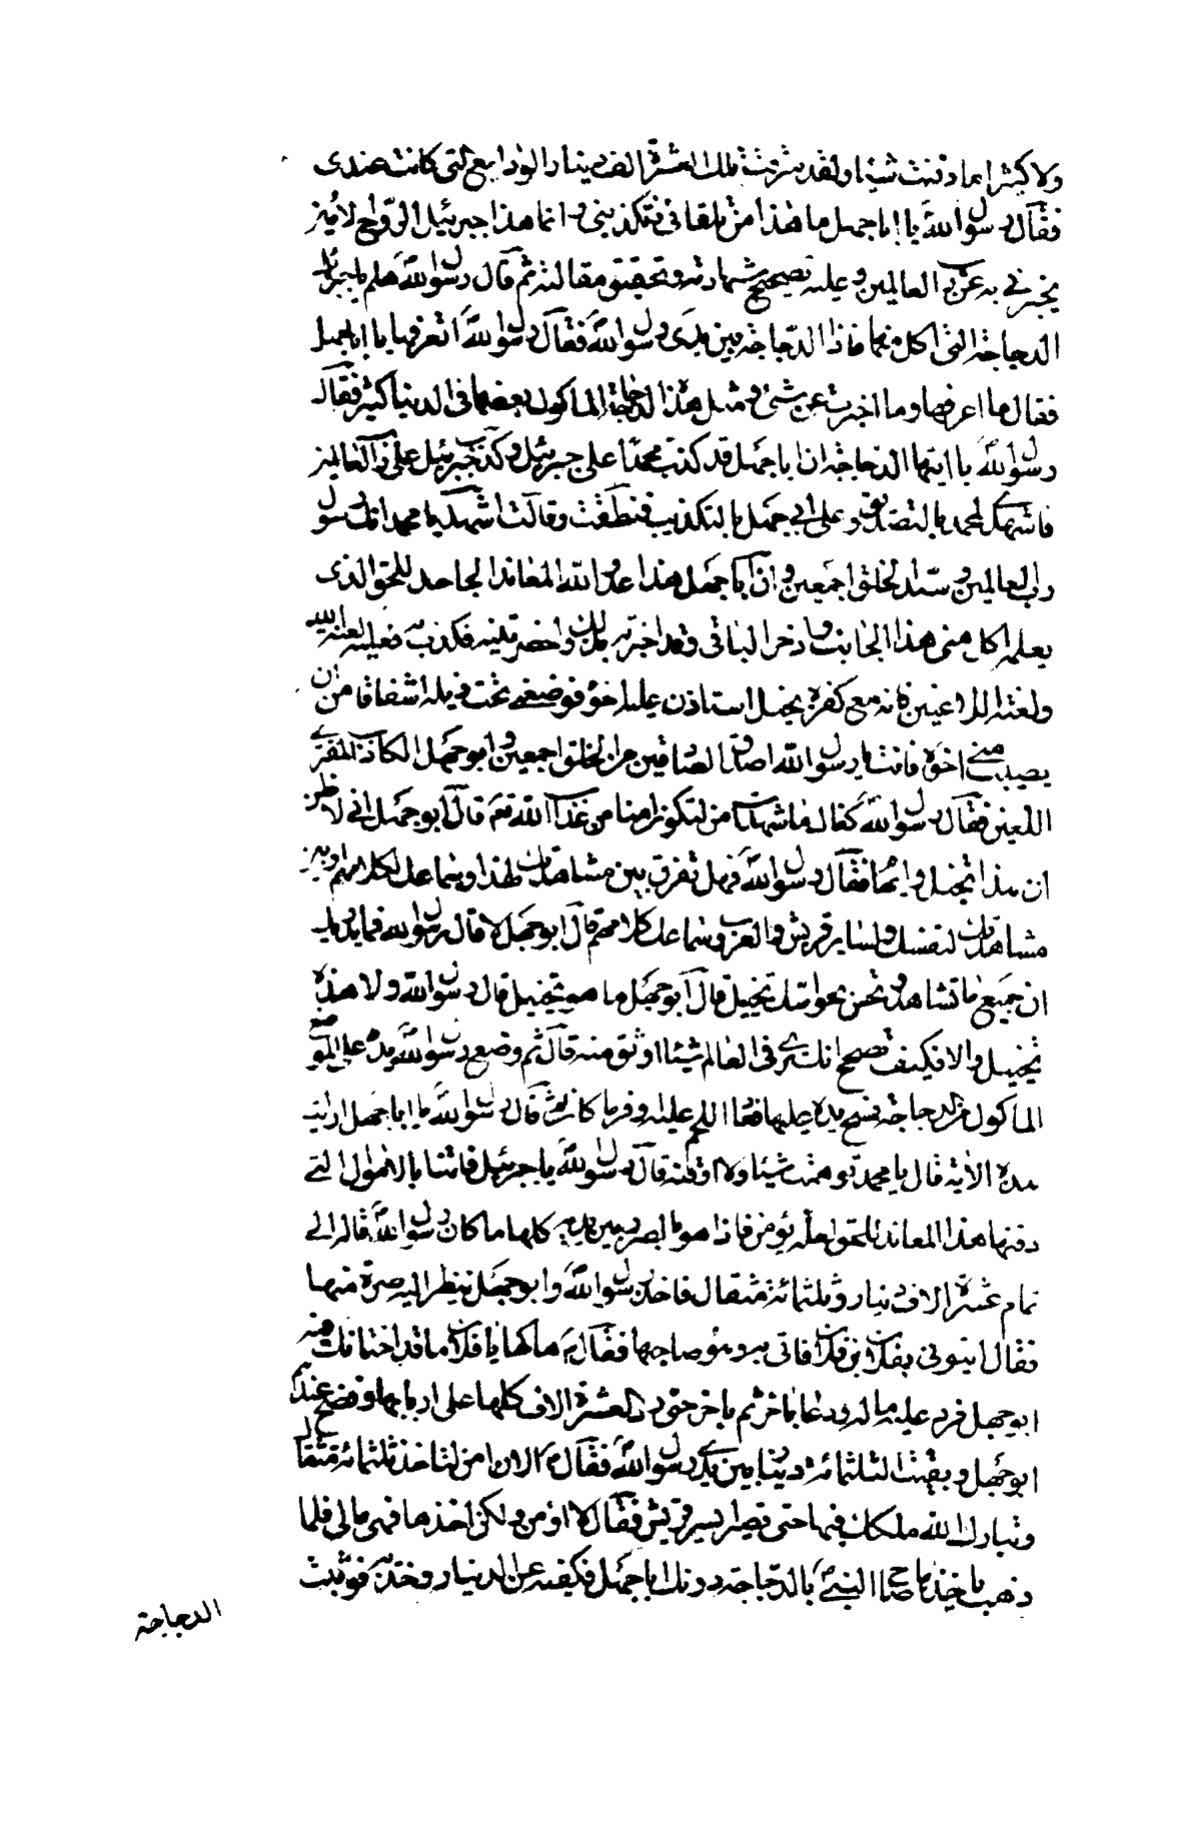 ولا كثيرا مما دفنت شيئا ولقد سرقت تلك العشرة الف دينار الودايع التى كانت عندى
فقال رسول الله يا ابا جهل ما هذا من تلقائى فتكذبنى و انما هذا جبرئيل الروح الامين
يخبرنى به عن رب العالمين وعليه تصحيح شهادته وتحقيق مقالته ثم قال رسول الله هلم يا جبرئيل
الدجاجة التى اكل منها فاذا الدجاجة بين يدى رسول الله فقال رسول الله اتعرفها يا ابا جهل
فقال ما اعرفها وما اخبرت عن شئ ومثل هذا الدجاجة الماكول بعضها فى الدنيا كثير فقال
رسول الله يا ايتها الدجاجة ان ابا جهل قد كذب محمدا على جبرئيل وكذب جبرئيل على رب العالمين
فاشهدى لمحمد بالتصديق وعلى ابى جهل بالتكذيب فنطقت وقالت اشهد يا محمد انك رسول
رب العالمين وسيد الخلق اجمعين وان ابا جهل هذا عدو الله المعاند الجاحد للحق الذى
يعلمه اكل منى هذا الجانب وادخر الباقى وقد اخبرته بذلك واحضرتنيه فكذب به فعليه لعنة الله
ولعنة اللاعنين فانه مع كفره بخيل استاذن عليه اخوه فوضعنى تحت ذيله اشفاقا من ان
يصيب منى اخوه فانت يا رسول الله اصدق الصادقين من الخلق اجمعين وابو جهل الكاذب المفترى
اللعين فقال رسول الله كفاك ما شاهدت امن لتكون امنا من عذاب الله تع قال ابو جهل انى لاظن
ان هذا تخييل وايهام فقال رسول الله فهل تفرق بين مشاهدتك لهذا وسماعك لكلامهم وبين
مشاهدتك لنفسك ولساير قريش والعرب وسماعك كلامهم قال ابو جهل لا قال رسول الله فما يدريك
ان جميع ما تشاهد وتحس بحواسك تخييل قال ابو جهل ما هو تخييل قال رسول الله ولا هذا
تخييل والا فكيف تصحح انك ترى فى العالم شيئا اوثق منه قال ثم وضع رسول الله يده على الموضع
الماكول من الدجاجة فمسح يده عليها فعاد اللحم عليه اوفر ما كان ثم قال رسول الله يا ابا جهل ارايت
هذه الاية قال يا محمد توهمت شيئا ولا اوقنه قال رسول الله يا جبرئيل فاتنا بالاموال التى
دفنها هذا المعاند للحق لعله يؤمن فاذا هو بالصرر بين يديه كلها ما كان رسول الله قاله الى
تمام عشرة الاف دينار وثلثمائة مثقال فاخذ رسول الله وابو جهل ينظر اليه صرة منها
فقال ايتونى بفلان بن فلان فاتى به وهو صاحبها فقال ص هاكها يا فلان ما قد اختانك فيه
ابو جهل فرد عليه ماله ودعا باخر ثم باخر حتى رد العشرة الاف كلها على اربابها وفضح عندهم
ابو جهل وبقيت الثلثمائة دينار بين يدى رسول الله فقال ص الان امن لتاخذ ثلثمائة مثقال
وتبارك الله لك فيها حتى تصير ايسر قريش فقال لا اؤمن ولكن اخذها فهى مالى فلما
ذهب ياخذها صاح النبى ص بالدجاجة دونك ابا جهل فكفيه عن الدنيار وخذيه فوثبت
الدجاجة